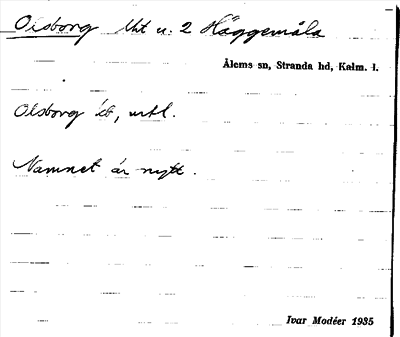 Olsborg Uht u. 2 Häggemåla
Ålems sn, Stranda hd, Kalm. l.
Olsborg
Namnet är nytt.
Ivar Modéer 1935